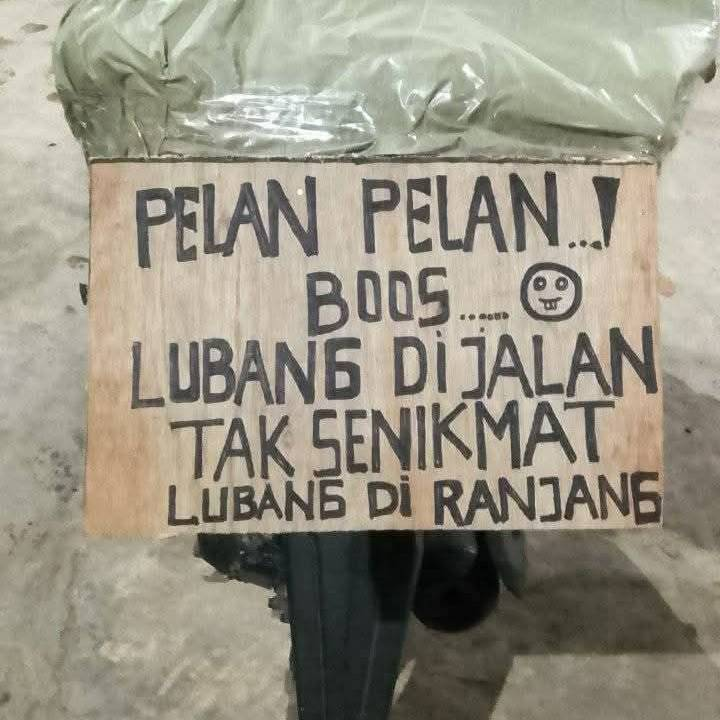 PELAN PELAN...!
BOOS......
LUBANG DIJALAN
TAK SENIKMAT
LUBANG Di RANJANG